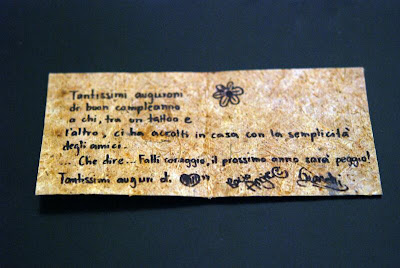 Tantissimi auguroni
di buon compleanno
a chi, tra un tattoo e
l'altro, ci ha accolti in casa con la semplicità
degli amici.
... Che dire... Falli coraggio, il prossimo anno sarà peggio!
Tantissimi auguri di